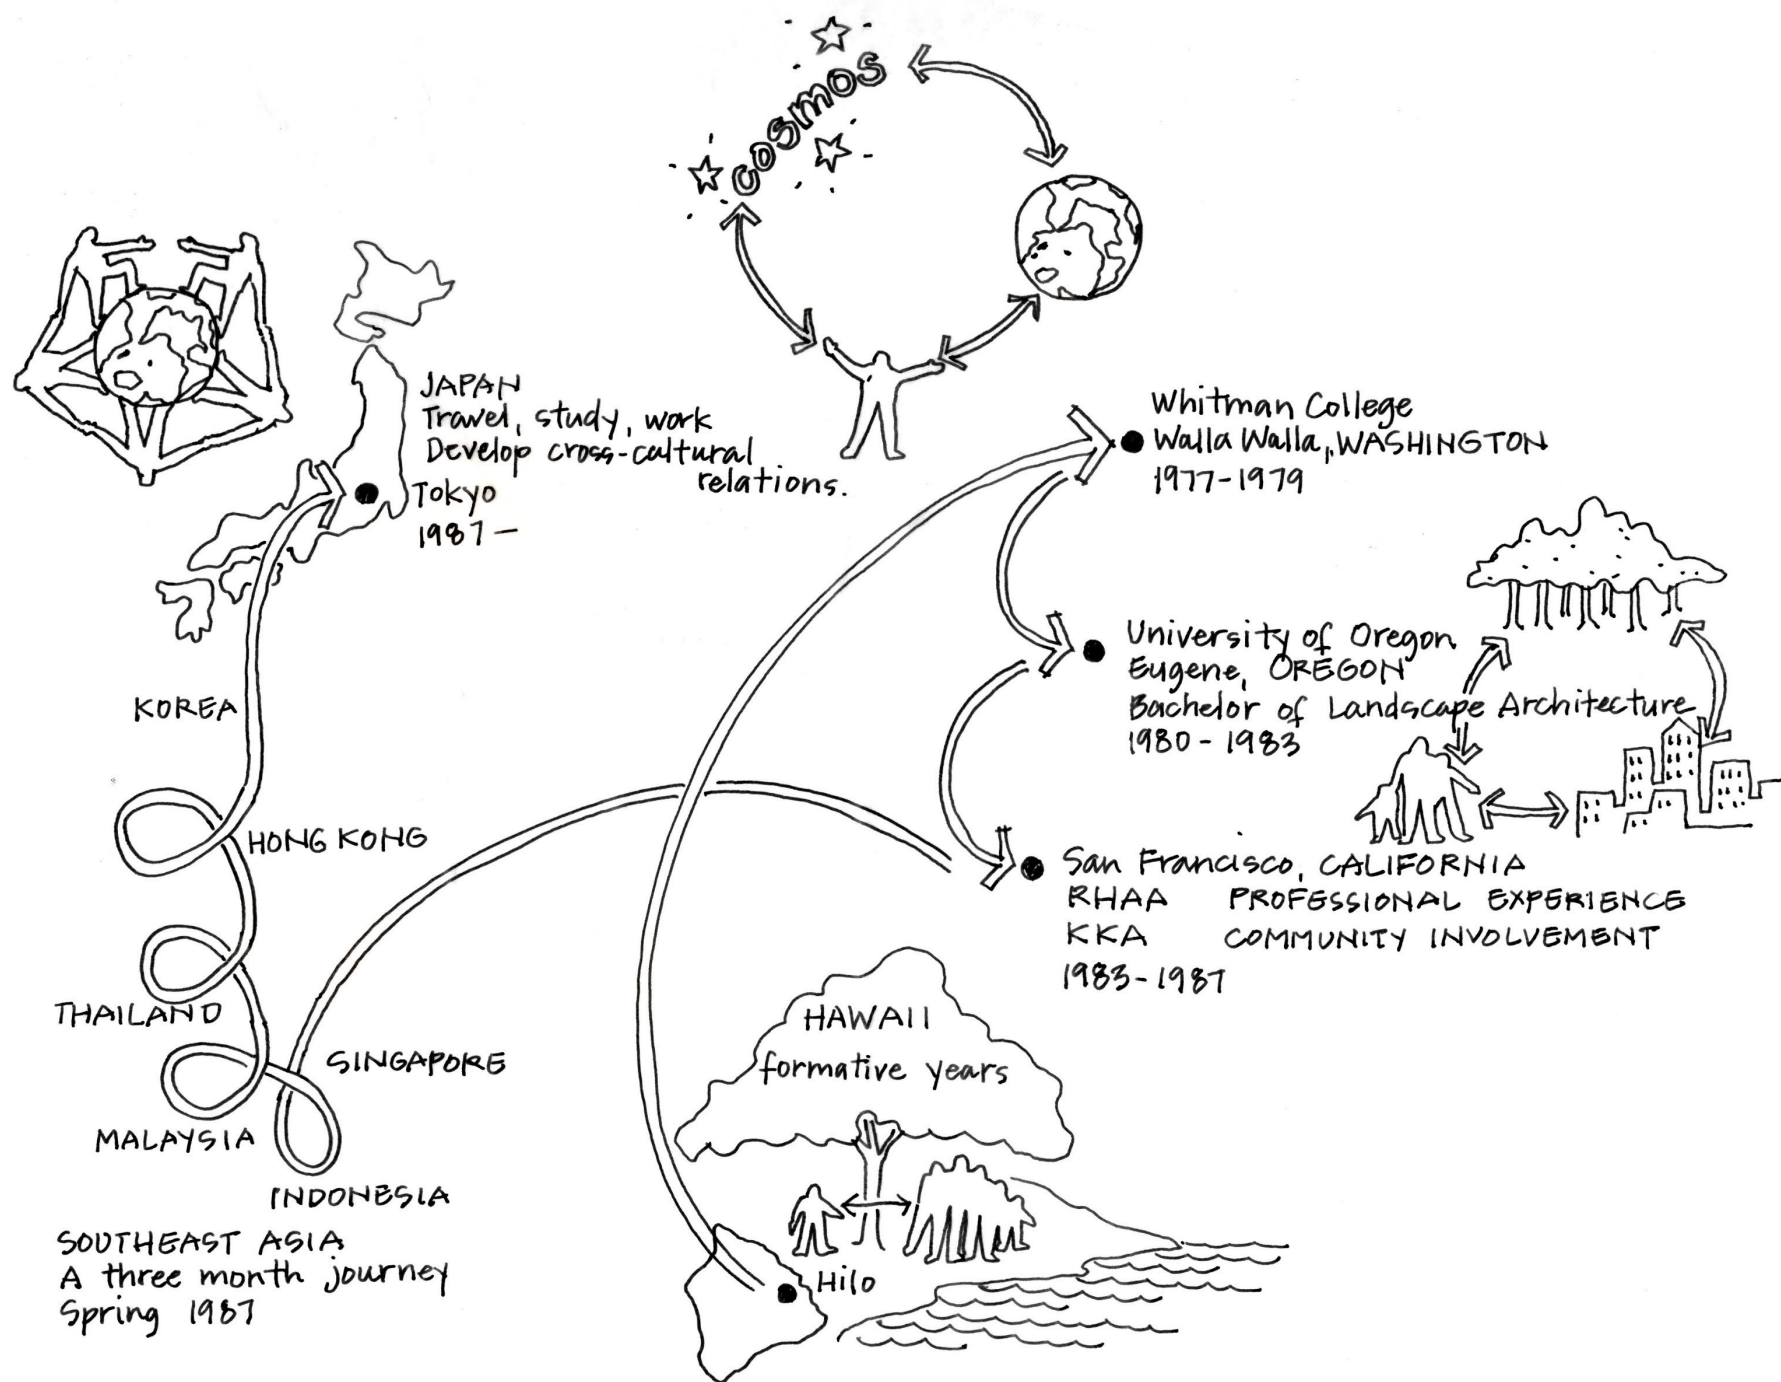 cosmos
JAPAN
Travel, study, work
Develop cross-cultural
relations.
Tokyo
1987 —
Whitman College
Walla Walla, WASHINGTON
1977-1979
University of Oregon
Eugene, OREGON
Bachelor of Landscape Architecture
1980 - 1983
San Francisco, CALIFORNIA
RHAA PROFESSIONAL EXPERIENCE
KKA COMMUNITY INVOLVEMENT
1983-1987
KOREA
HONG KONG
THAILAND
SINGAPORE
MALAYSIA
INDONESIA
SOUTHEAST ASIA
A three month journey
Spring 1987
HAWAII
formative years
Hilo